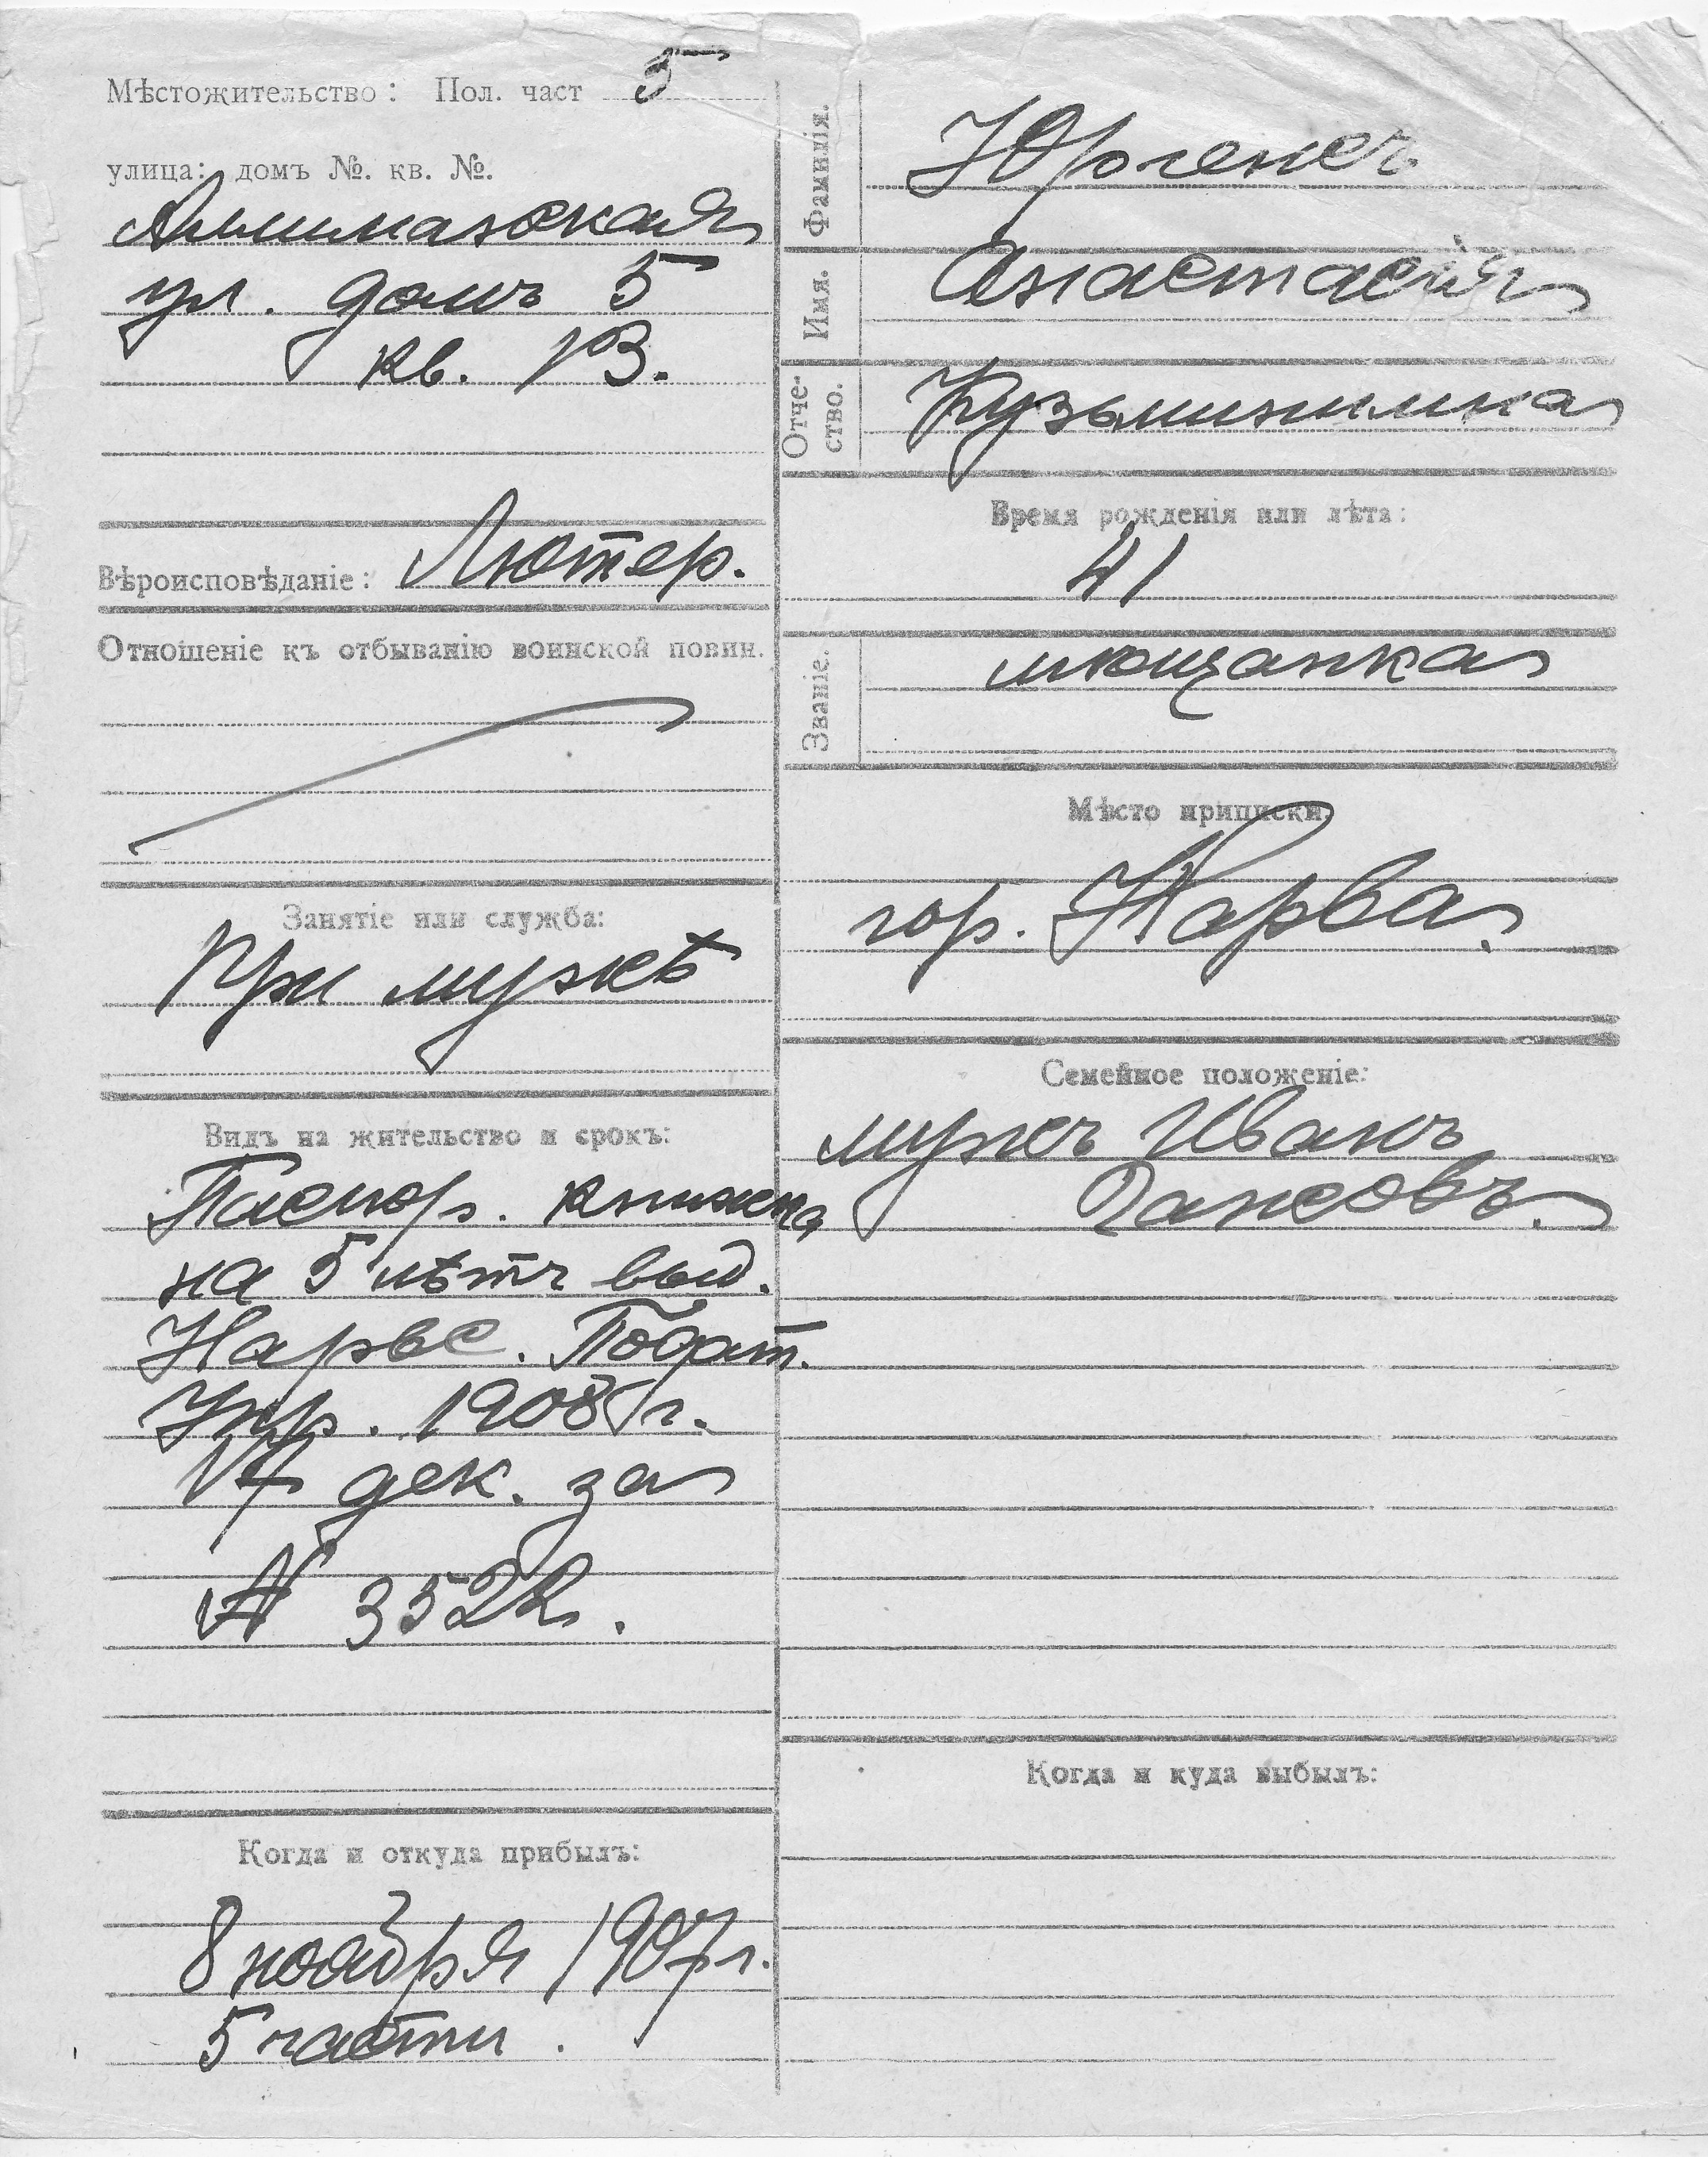 Мѣстожительство: Пол. част 5
улица: домъ №. кв. №.
ул. домъ 5
кв. 13.
Вѣроисповѣданіе: Лютер.
Отношеніе къ отбыванію воинской повин.
Занятіе или служба:
При мужѣ
Видъ на жительство и срокъ:
Паспор. книжка
на 5 лѣтъ выд.
Нарвс. Подат.
Упр. 1908 г.
17 дек. за
№ 3522.
Когда и откуда прибылъ:
8 ноября 1907 г.
5 части.
Фамилія. Юргенсъ
Имя. Анастасія
Отче-
ство. Кузьминишна
Время рожденія или лѣта:
41
Званіе. мѣщанка
Мѣсто приписки.
гор. Нарва.
Семейное положеніе:
мужъ Иванъ
Гансовъ.
Когда и куда выбылъ: